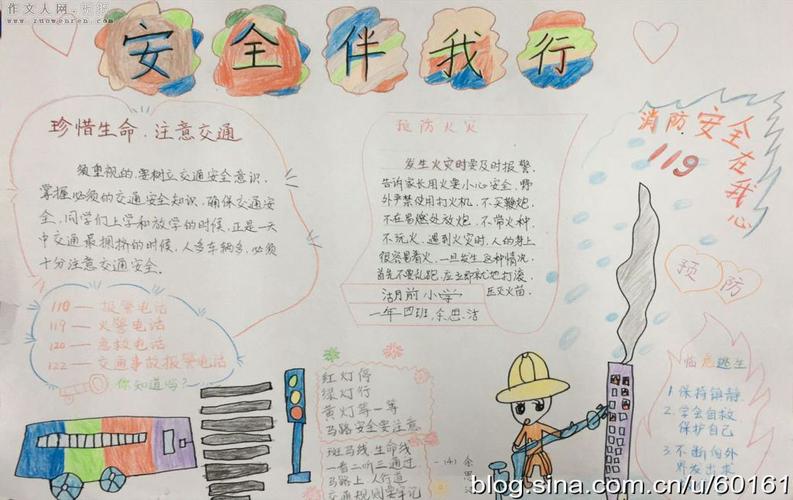 作文人网
www.zuowenren.com
安全伴我行
珍惜生命、注意交通
须重视的,要树立交通安全意识,
掌握必须的交通安全知识,确保交通安
全,同学们上学和放学的时候,正是一天
中交通最拥挤的时候,人多车辆多,必须
十分注意交通安全。
110—报警电话
119—火警电话
120—急救电话
122—交通事故报警电话
你知道吗?
预防火灾
发生火灾时要及时报警,
告诉家长用火要小心安全,野
外严禁使用打火机,不买鞭炮,
不在易燃处放炮,不带火种,
不玩火,遇到火灾时,人的身上
很容易着火,一旦发生这种情况,
首先不要乱跑,应立即就地打滚,
压灭火苗。
湖前小学
一年四班,余思洁
消防安全在我心
119
预防
临危逃生
1.保持镇静
2.学会自救
保护自己
3.不断向外
界发出求
红灯停
绿灯行
黄灯等一等
马路安全要注意
斑马线 生命线
一看二听三通过
马路上 人行道
交通规则要牢记
1(4) 余
思
blog.sina.com.cn/u/60161